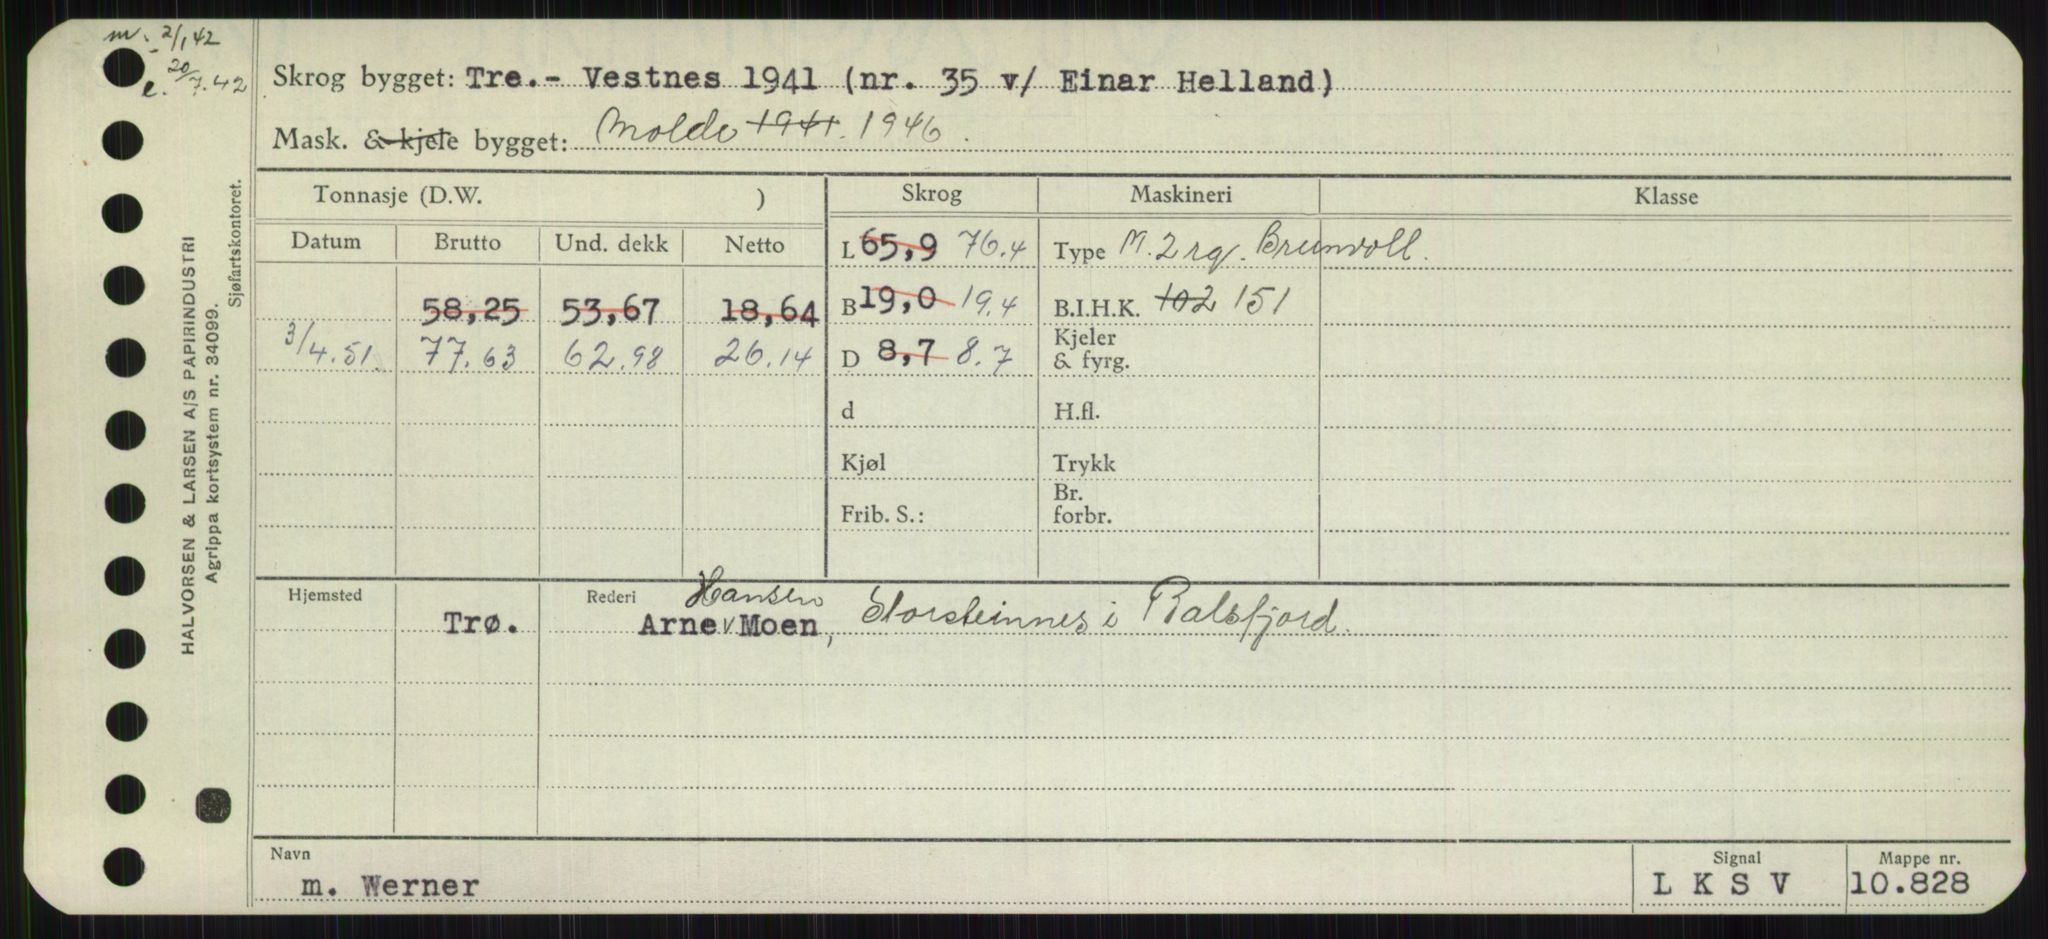 m. 2/1 42
e. 20/7.42
Skrog bygget: Tre.- Vestnes 1941 (nr. 35 v/ Einar Helland)
Mask. & kjele bygget: Molde 1941. 1946.
Tonnasje (D.W. )
Skrog
Maskineri
Klasse
Datum Brutto Und. dekk Netto
L 65,9 76.4
Type M. 2 rg. Brunvoll.
58,25 53,67 18,64
B 19,0 19.4
B.I.H.K. 102 151
3/4.51. 77.63 62.98 26.14
D 8,7 8.7
Kjeler
& fyrg.
d
H.fl.
Kjøl
Trykk
Frib. S.:
Br.
forbr.
Hjemsted
Rederi
Hansen
Trø.
Arne v Moen, Storsteinnes i Balsfjord.
Navn
Signal
Mappe nr.
m. Werner
L K S V
10.828
HALVORSEN & LARSEN A/S PAPIRINDUSTRI
Agrippa kortsystem nr. 34099.
Sjøfartskontoret.